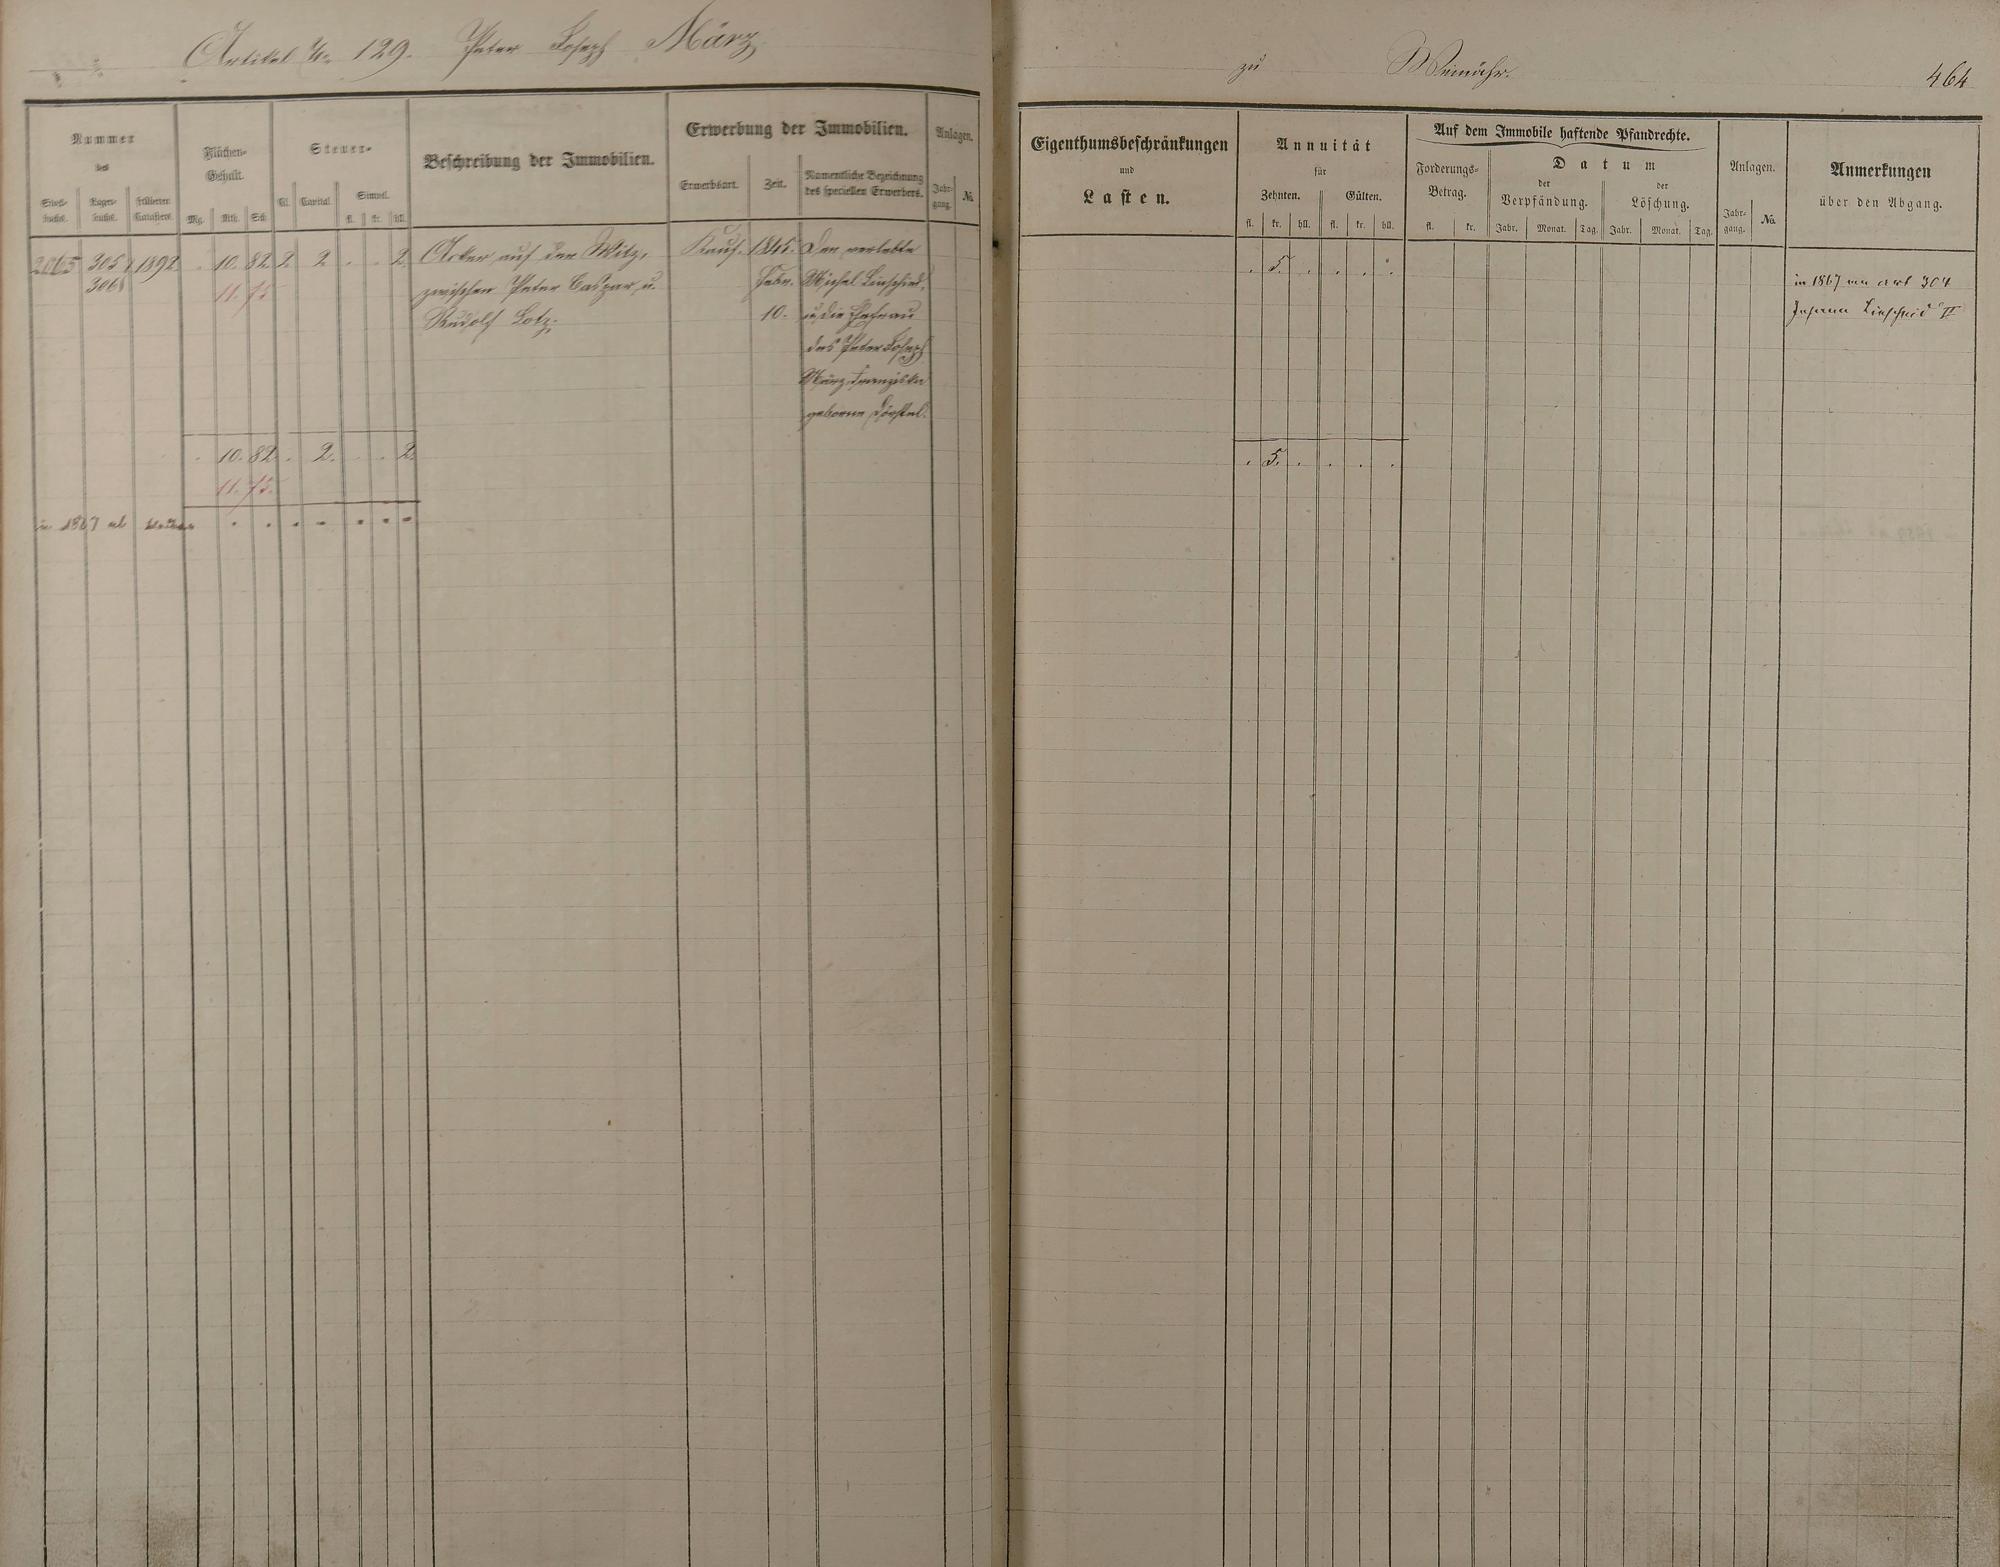 Artikel No 129. Peter Joseph März
zu Weinähr. 464
Nummer
des
Stock-
buchs.
Lager-
buchs.
früheren
Catasters.
Flächen-
Gehalt.
Mg. Rth. Sch.
Steuer-
Cl. Capital. Simpel.
fl. kr. hll.
Beschreibung der Immobilien.
Erwerbung der Immobilien.
Erwerbsart. Zeit.
Namentliche Bezeichnung
des speciellen Erwerbers.
Anlagen.
Jahr-
gang.
No.
Eigenthumsbeschränkungen
und
Lasten.
Annuität
für
Zehnten. Gülten.
fl. kr. hll. fl. kr. hll.
Auf dem Immobile haftende Pfandrechte.
Forderungs-
Betrag.
fl. kr.
Datum
der
Verpfändung.
der
Löschung.
Jahr. Monat. Tag. Jahr. Monat. Tag.
Anlagen.
Jahr-
gang.
No.
Anmerkungen
über den Abgang.
2065 305 1892 . 10. 82. 2 2 . . 2.
3068
11. 75
Acker auf der Mitz,
zwischen Peter Caspar u.
Rudolf Lotz.
Kauf. 1845.
Febr.
10.
Der verlebte
Michel Linscheid,
u. die Ehefrau
des Peter Joseph
März, Franziska
geborne
. 5. . . . .
in 1867 an art 304
Johann Linscheid II
. 10. 82. . 2. . . 2.
11. 75.
. 5. . . . .
in 1867 ab